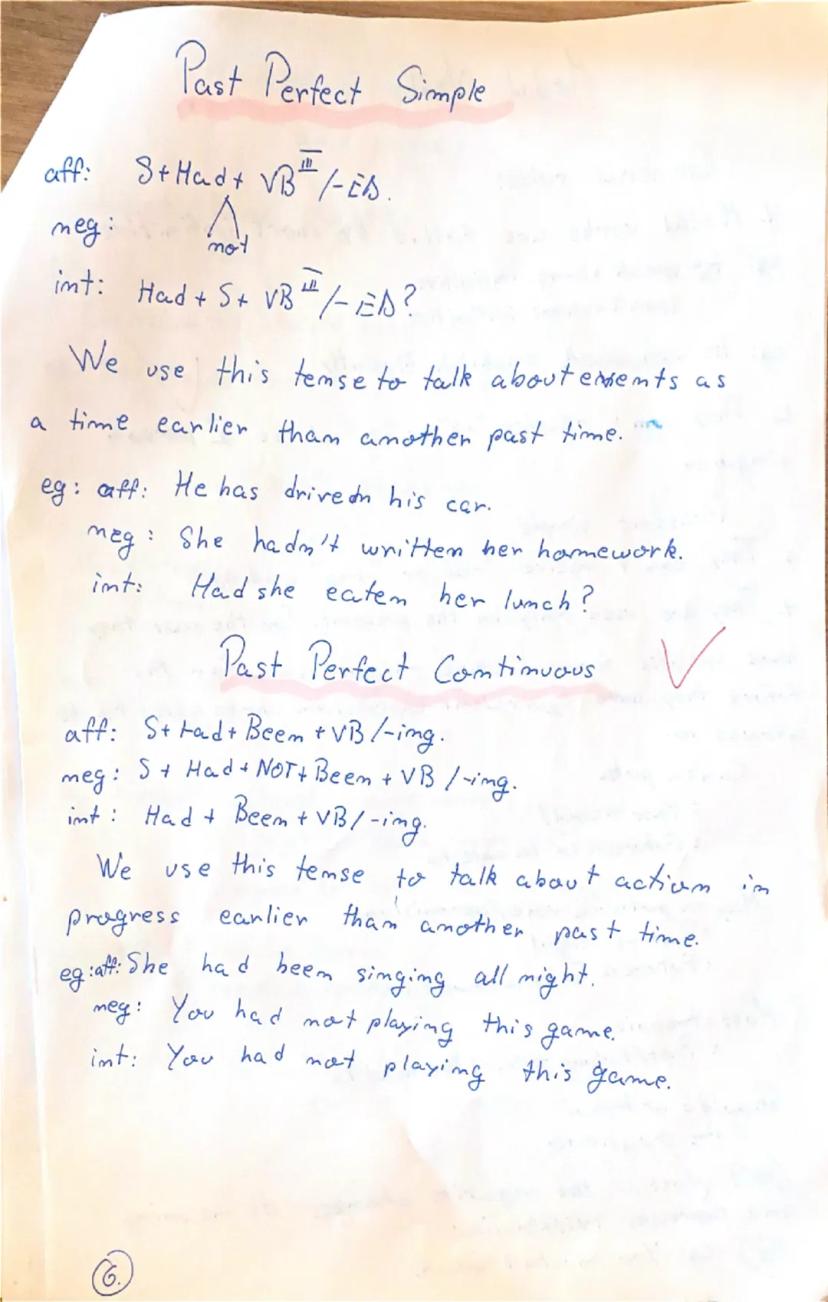 Past Perfect Simple
aff: S+Had+ VB III/-ED.
neg: not
int: Had + S+ VB III/-ED?
We use this tense to talk about events as
a time earlier than another past time.
eg: aff: He has driven his car.
neg: She hadn't written her homework.
int: Had she eaten her lunch?
Past Perfect Continuous
aff: S+ Had+ Been + VB/-ing.
neg: S + Had + NOT+ Been + VB /-ing.
int: Had + Been + VB/-ing.
We use this tense to talk about action in
progress earlier than another past time.
eg: aff: She had been singing all night.
neg: You had not playing this game.
int: You had not playing this game.
6.